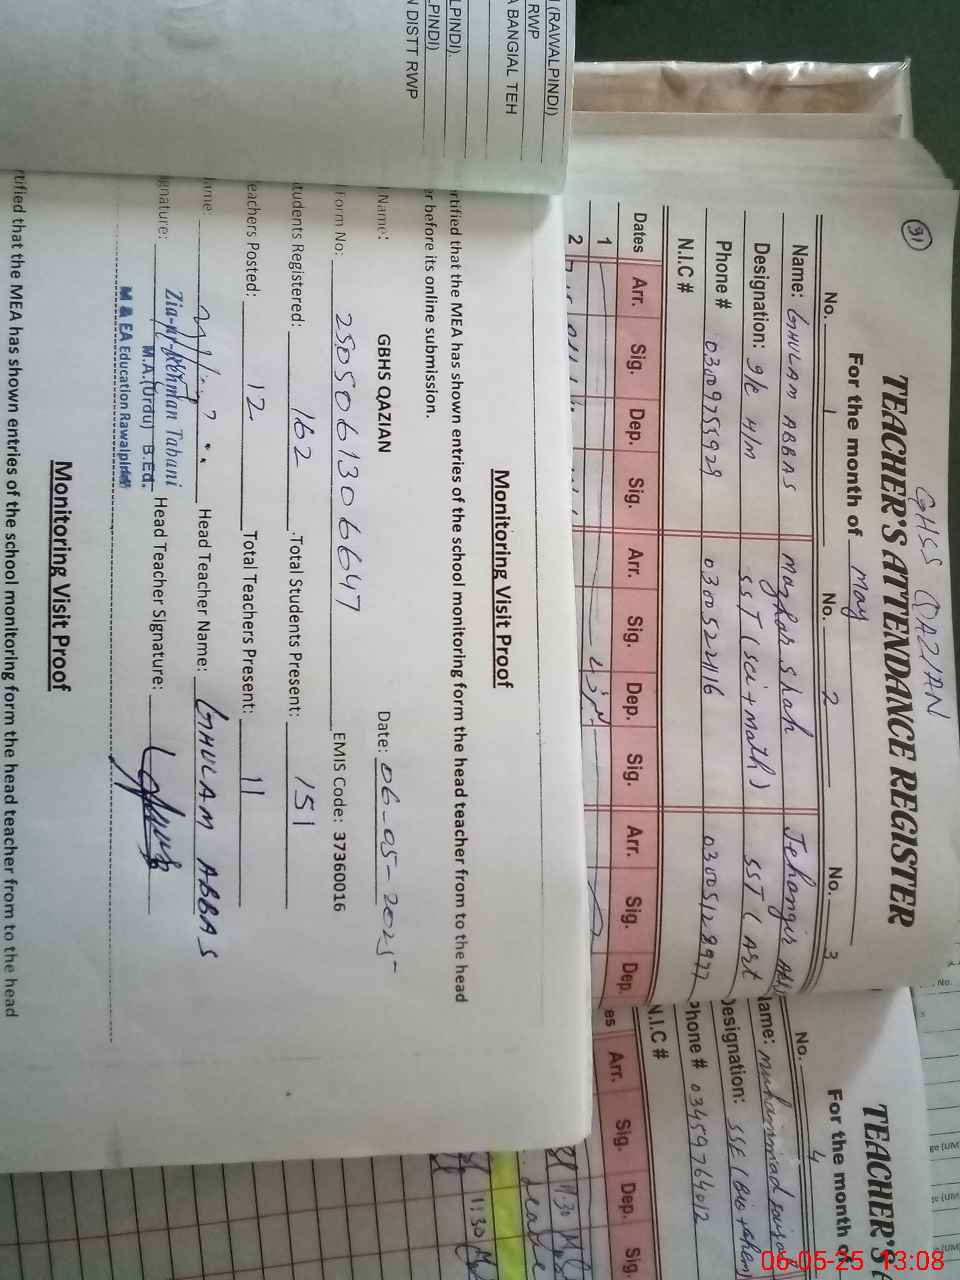 GHSS QAZIAN
31
TEACHER'S ATTENDANCE REGISTER
For the month of May
No. 1 No. 2 No. 3
Name: GHULAM ABBAS Mazhar Shah Jehangir
Designation: I/C H/M SST (Sci + Math) SST (Art
Phone # 03009755929 03005221116 03005128977
N.I.C #
Dates Arr. Sig. Dep. Sig. Arr. Sig. Dep. Sig. Arr. Sig. Dep.
1
2
TEACHER'S
For the month of
No. 4
Name: Muhammad
Designation: SSE (Bio + Chem)
Phone # 03459764012
N.I.C #
es Arr. Sig. Dep. Sig.
1:30
Leave
1:30
(RAWALPINDI)
RWP
A BANGIAL TEH
LPINDI).
PINDI)
N DISTT RWP
Monitoring Visit Proof
rtified that the MEA has shown entries of the school monitoring form the head teacher from to the head
er before its online submission.
l Name: GBHS QAZIAN Date: 06-05-2025
Form No: 2505061306647 EMIS Code: 37360016
tudents Registered: 162 Total Students Present: 151
eachers Posted: 12 Total Teachers Present: 11
ame: Head Teacher Name: GHULAM ABBAS
gnature: Head Teacher Signature:
Zia-ur-Rehman Tabani
M.A.(Urdu) B.Ed.
M & EA Education Rawalpindi
Monitoring Visit Proof
rtified that the MEA has shown entries of the school monitoring form the head teacher from to the head
06-05-25 13:08